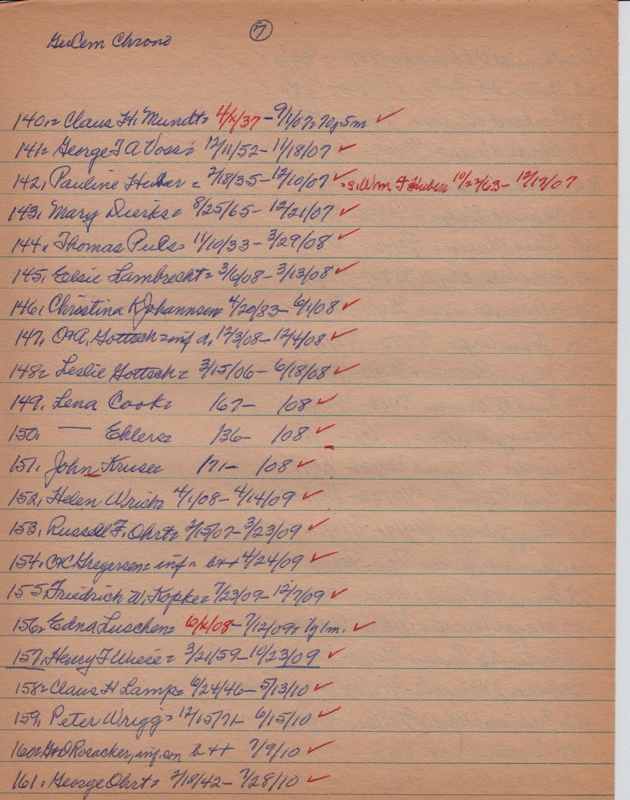 GerCem Chrono
7
140. = Claus H. Mundt = 4/x/37 - 9/1/07 = 70y 5m ✓
141 = George T A Voss = 12/11/52 - 11/18/07 ✓
142. Pauline Huber = 7/18/35 - 12/10/07 ✓ = s. Wm F Huber 10/22/63 - 12/17/07
143. Mary Dierks = 8/25/65 - 12/21/07 ✓
144. Thomas Puls = 11/10/33 - 3/29/08 ✓
145. Elsie Lambrecht = 3/6/08 - 3/13/08 ✓
146. Christina K Johannsen 4/20/83 - 6/1/08 ✓
147. O & A. Gottsch = inf d. 12/3/08 - 12/4/08 ✓
148 = Leslie Gottsch = 3/15/06 - 6/18/08 ✓
149. Lena Cook = /67 - /08 ✓
150. — Ehlers = /36 - /08 ✓
151. John Kruse = /71 - /08 ✓
152. Helen Wrich = 4/1/08 - 4/14/09 ✓
153. Russell F. Ohrt = 2/15/07 - 3/23/09 ✓
154. C & C Gregersen = inf = b++ 4/24/09 ✓
155 Friedrich W. Kopke = 7/23/09 - 12/7/09 ✓
156 = Edna Luschen = 6/x/08 - 7/12/09 = 1y 1m. ✓
157. Henry F Wiese = 3/21/59 - 10/23/09 ✓
158 = Claus H Lamp = 6/24/46 - 5/13/10 ✓
159. Peter Wrigg = 12/15/71 - 6/15/10 ✓
160 = G & D Rosacker, inf. son b++ 7/9/10 ✓
161. George Ohrt = 2/18/42 - 7/28/10 ✓